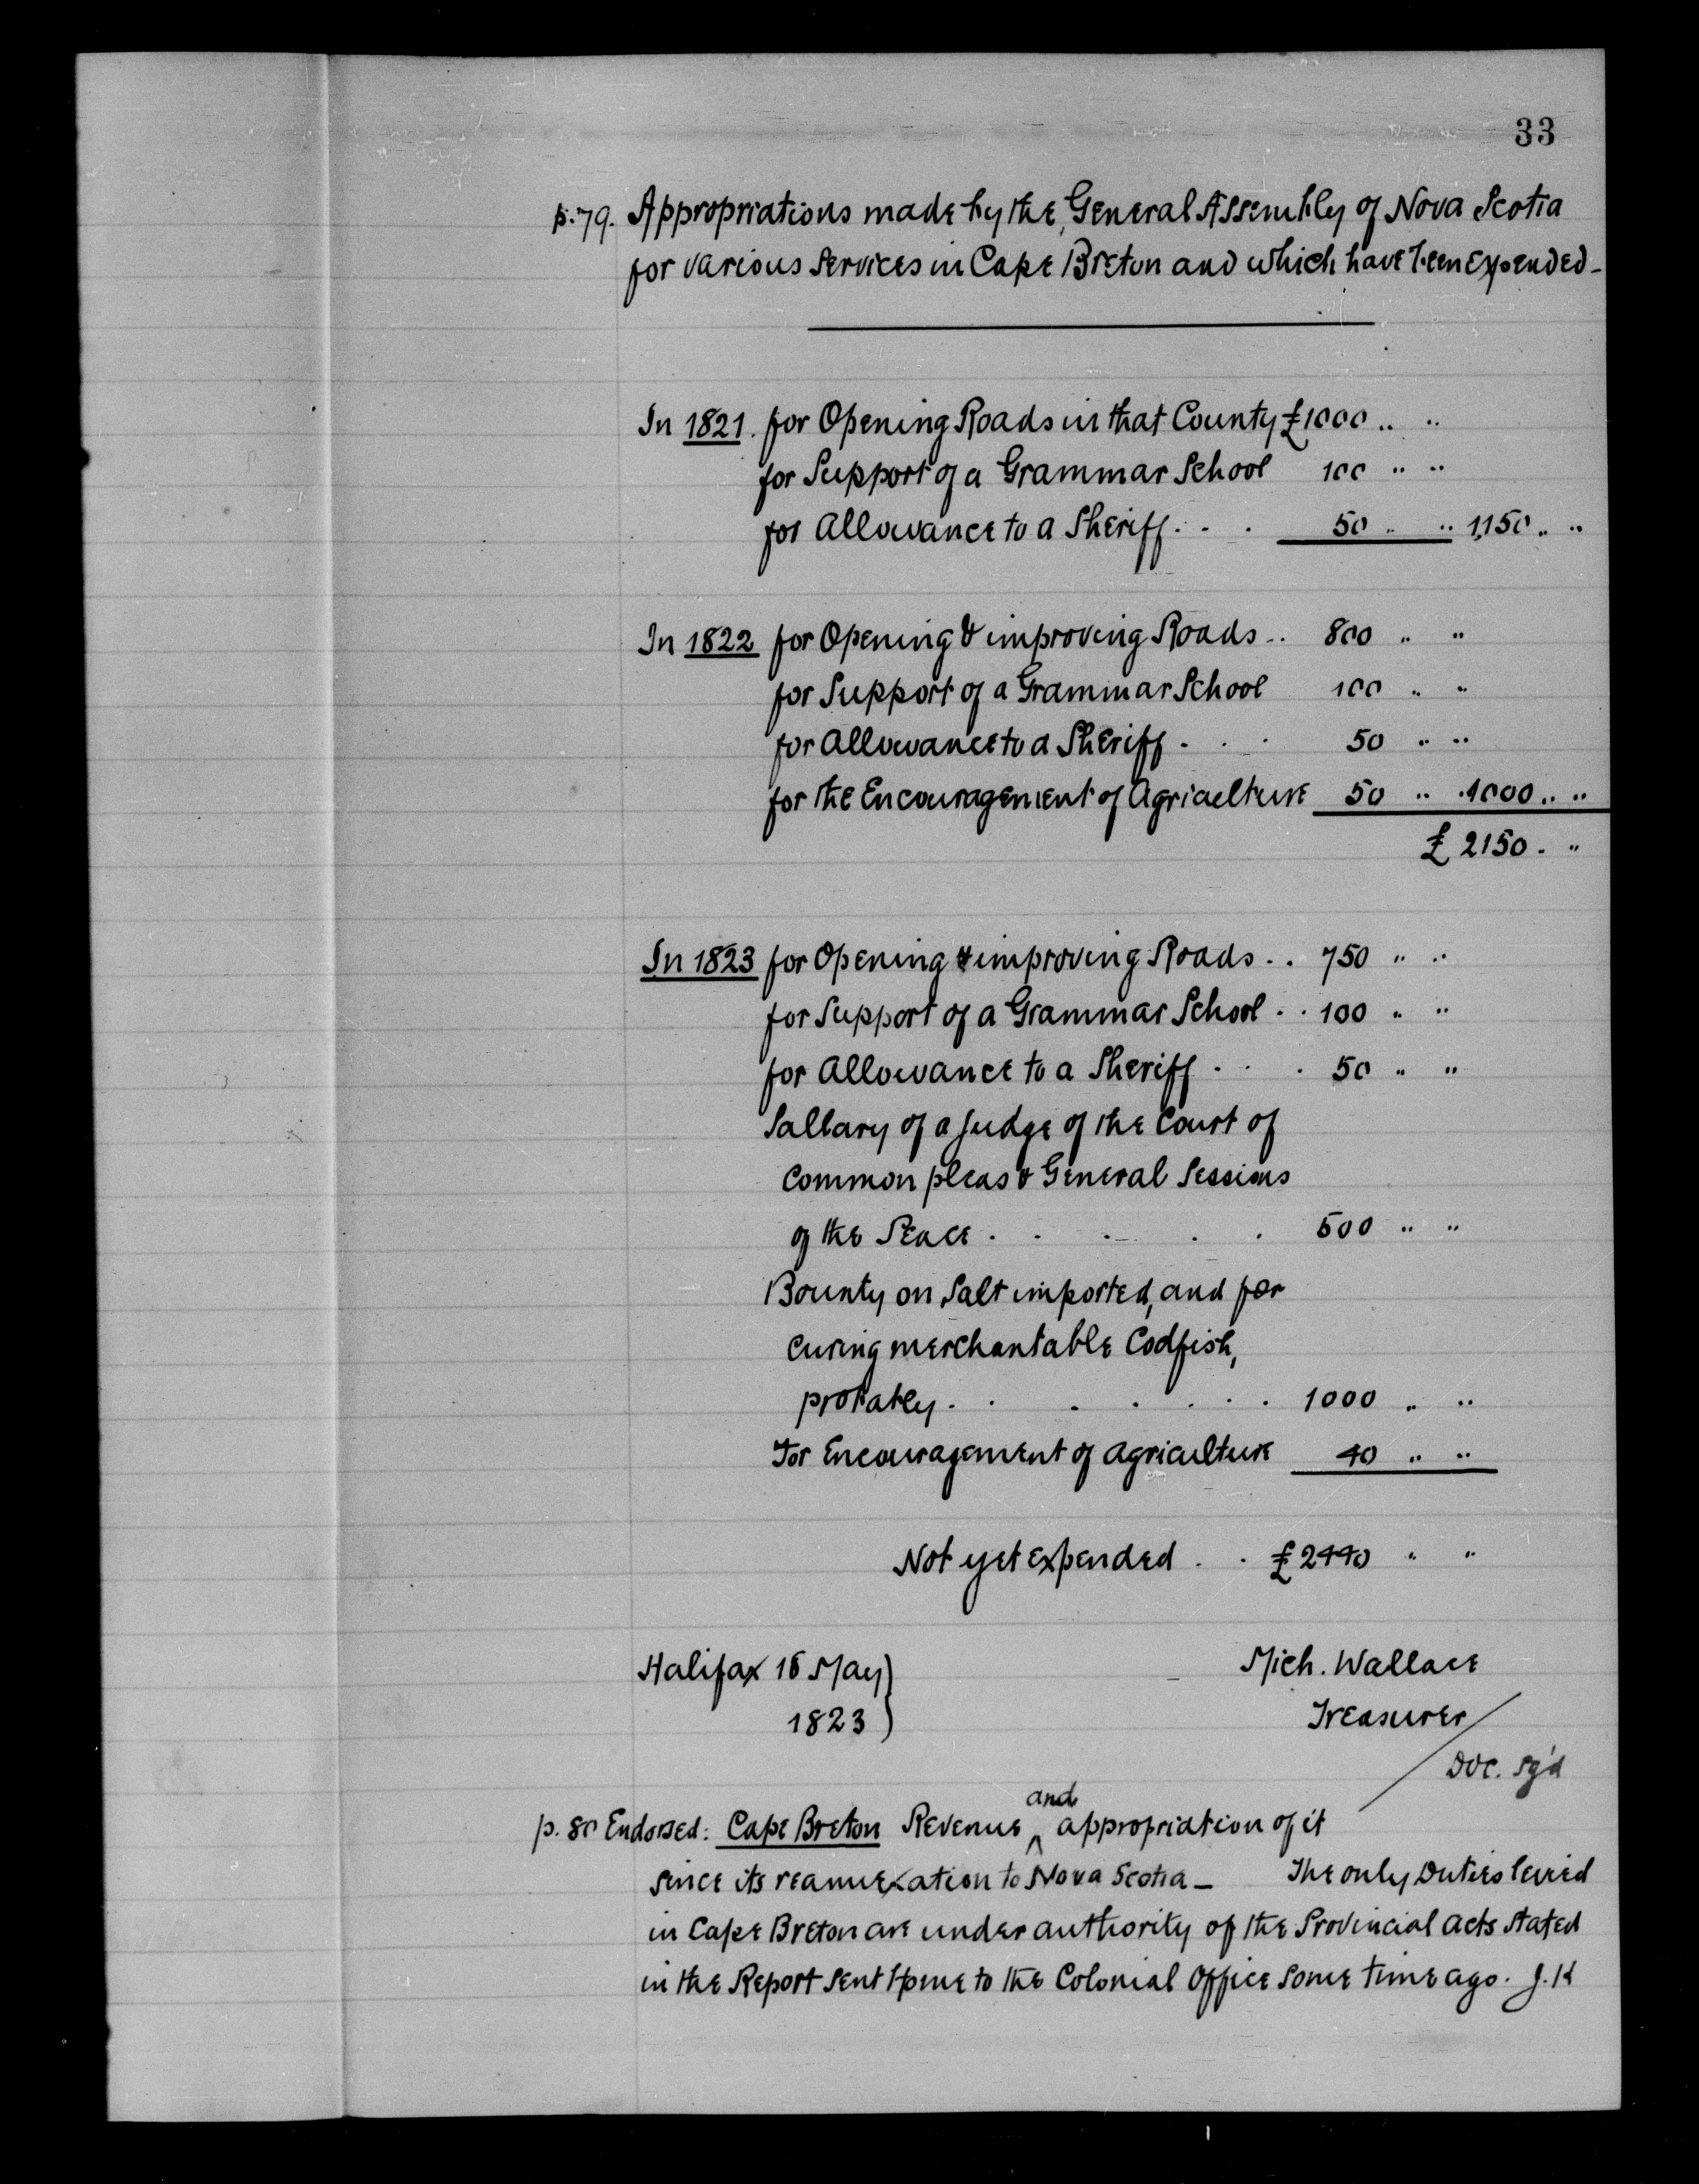 33
p. 79. Appropriations made by the General Assembly of Nova Scotia
for various Services in Cape Breton and which have been expended -
In 1821. for Opening Roads in that County £1000 .. ..
for Support of a Grammar School 100 .. ..
for Allowance to a Sheriff . . . 50 .. .. 1,150 .. ..
In 1822 for Opening & improving Roads .. 800 .. ..
for Support of a Grammar School 100 .. ..
for Allowance to a Sheriff . . . 50 .. ..
for the Encouragement of Agriculture 50 .. .. 1000 .. ..
£ 2150 . ..
In 1823 for Opening & improving Roads . . 750 .. ..
for Support of a Grammar School . . 100 .. ..
for Allowance to a Sheriff . . . 50 .. ..
Sallary of a Judge of the Court of
Common pleas & General Sessions
of the Peace . . . . . 500 .. ..
Bounty on Salt imported, and for
curing merchantable Codfish,
probably . . . . . . . 1000 .. ..
For Encouragement of Agriculture 40 .. ..
Not yet expended . . £2440 .. ..
Halifax 16 May) Mich. Wallace
1823) Treasurer
Doc. sg'd
p. 80 Endorsed: Cape Breton Revenue and appropriation of it
since its reannexation to Nova Scotia - The only Duties levied
in Cape Breton are under authority of the Provincial Acts stated
in the Report sent Home to the Colonial Office some time ago. J.K